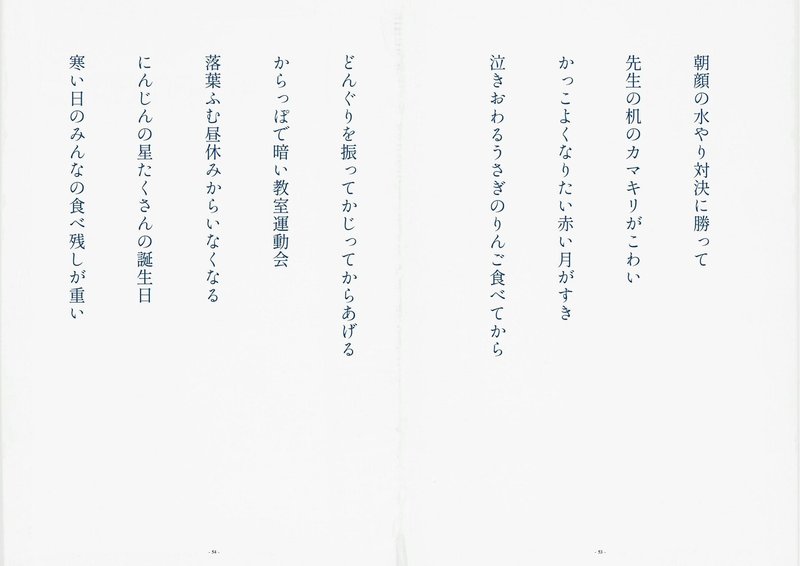 朝顔の水やり対決に勝って
先生の机のカマキリがこわい
かっこよくなりたい赤い月がすき
泣きおわるうさぎのりんご食べてから
- 53 -
どんぐりを振ってかじってからあげる
からっぽで暗い教室運動会
落葉ふむ昼休みからいなくなる
にんじんの星たくさんの誕生日
寒い日のみんなの食べ残しが重い
- 54 -